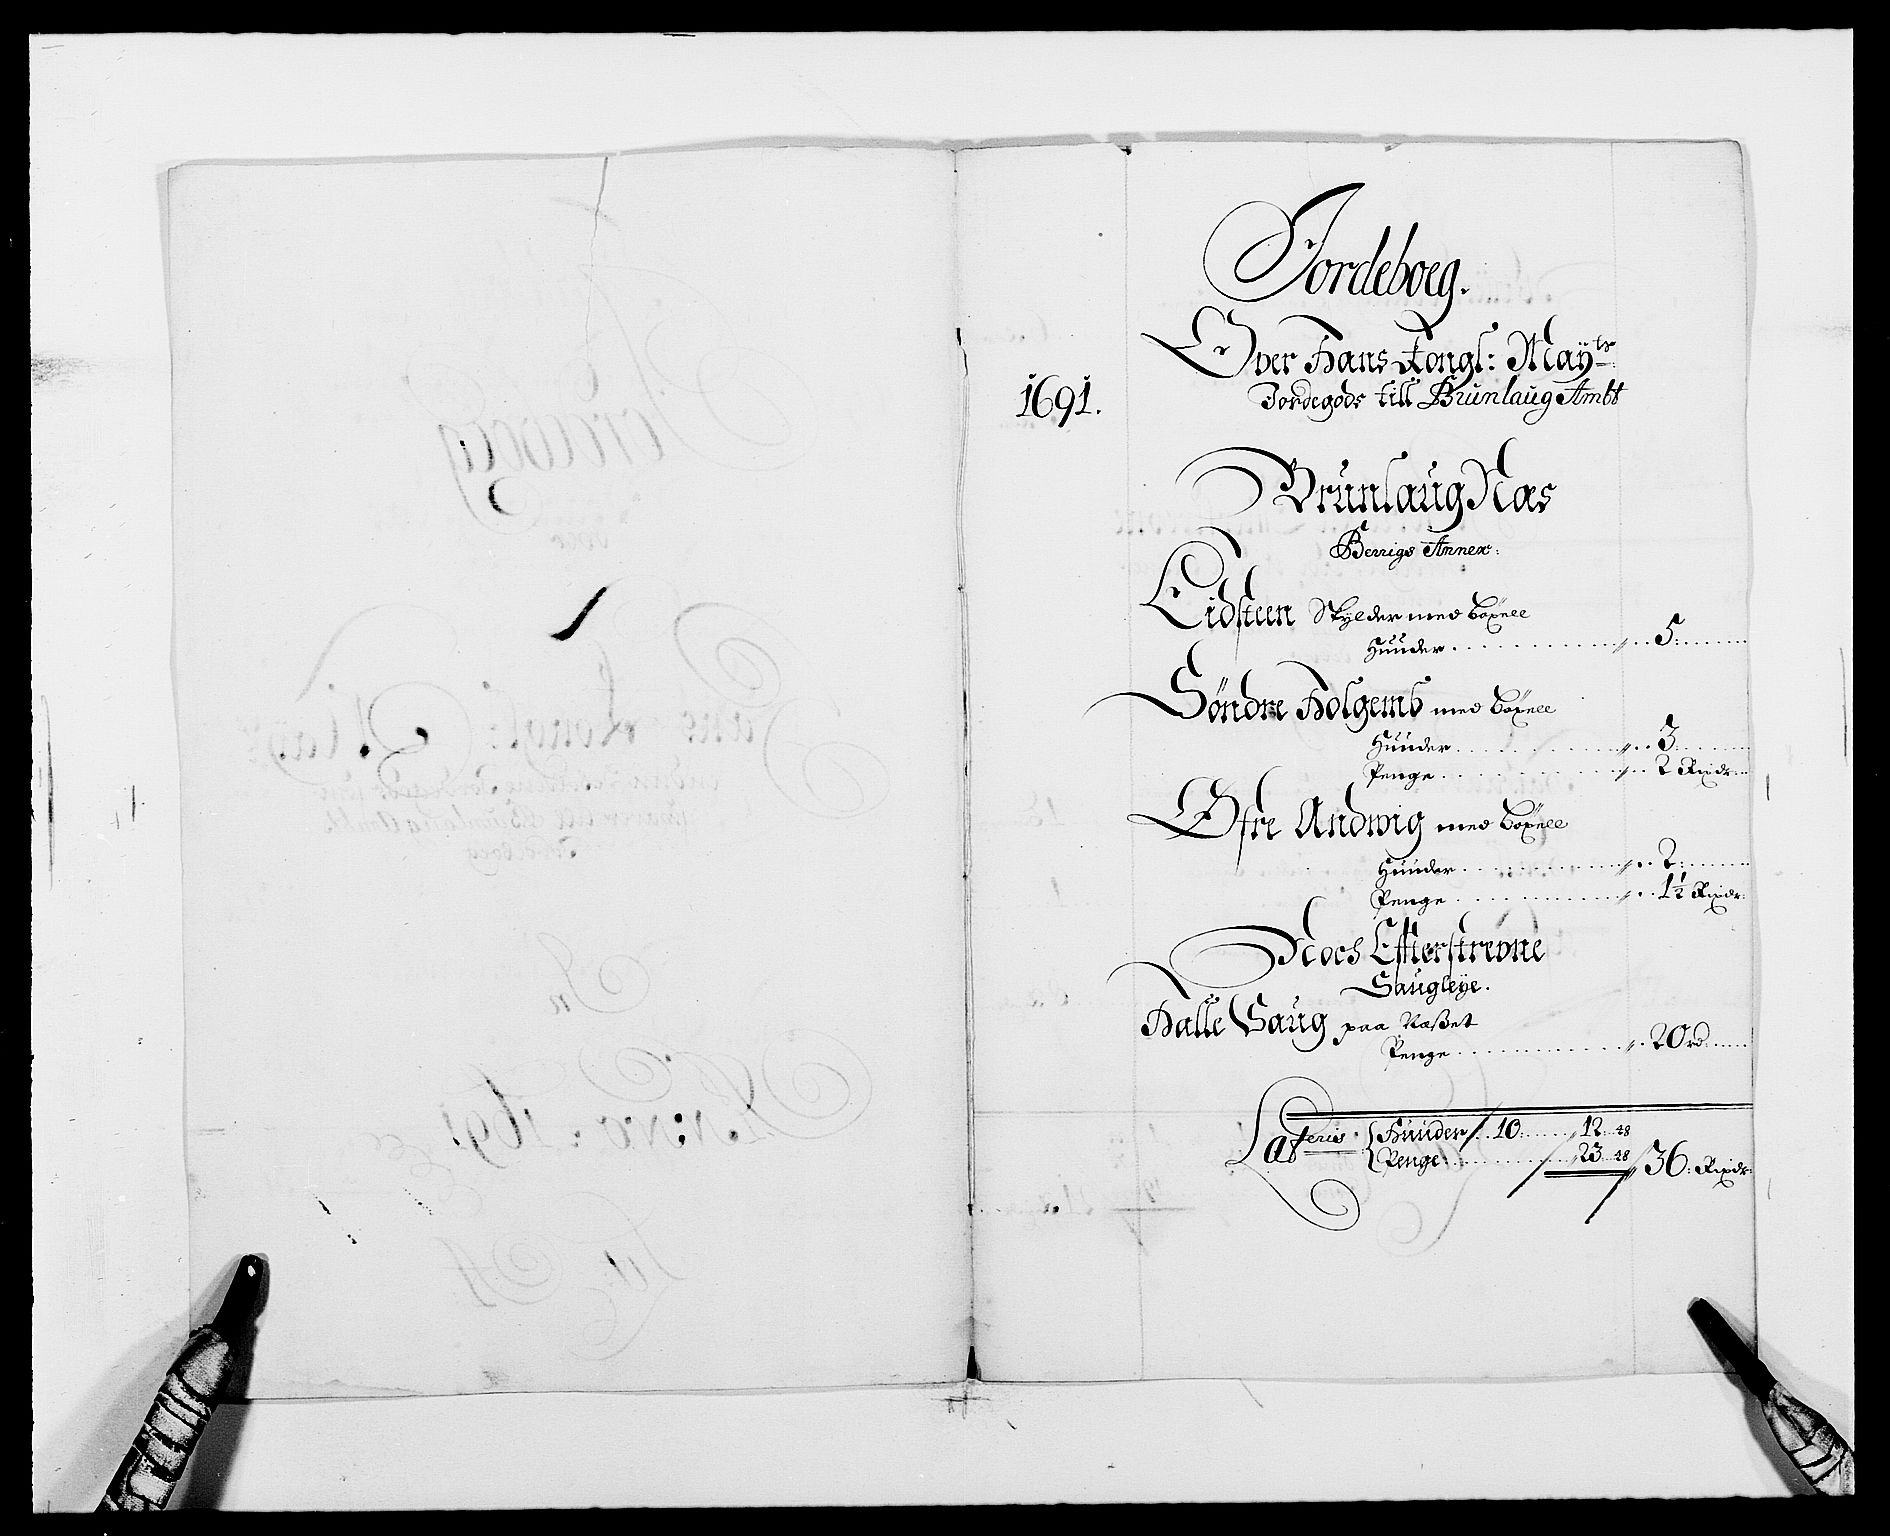 Jordeboeg.
Over Hans Kongl: Mayts
1691.
Jordegods till Brunlaug Ambt
Brunlaug Næs
Berrigs Annex:
Eidsteen Skylder med Böxell
Huuder . . . . 5.
Søndre Holgemb med Böxell
Huuder . . . . 3
Penge . . . . 2 Rixdr
Øfre Andwig med Böxell
Huuder . . . . 2.
Penge . . . . 1½ Rixdr:
Noch Effterskrevne
Saugleye.
Halle Saug paa Ræßet
Penge . . . . 20 rd
Lateris { Huuder 10 . . 12. 48
Penge . . 23. 48 36: Rixdr: